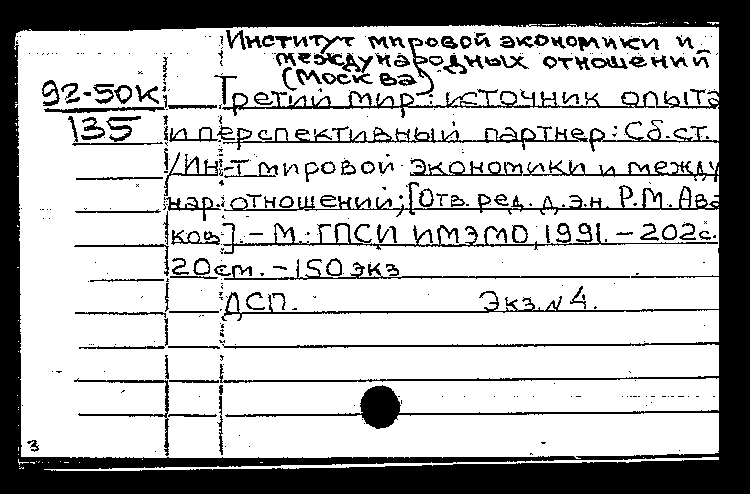 Институт мировой экономики и
международных отношений
(Москва)
92-50К
135
Третий мир: источник опыта
и перспективный партнер: Сб.ст.
/Ин-т мировой экономики и между
нар. отношений; [Отв. ред. д.э.н. Р.М. Ава
ков]. – М.: ГПСИ ИМЭМО, 1991. – 202с.
20см. – 150 экз
ДСП. Экз. № 4.
3